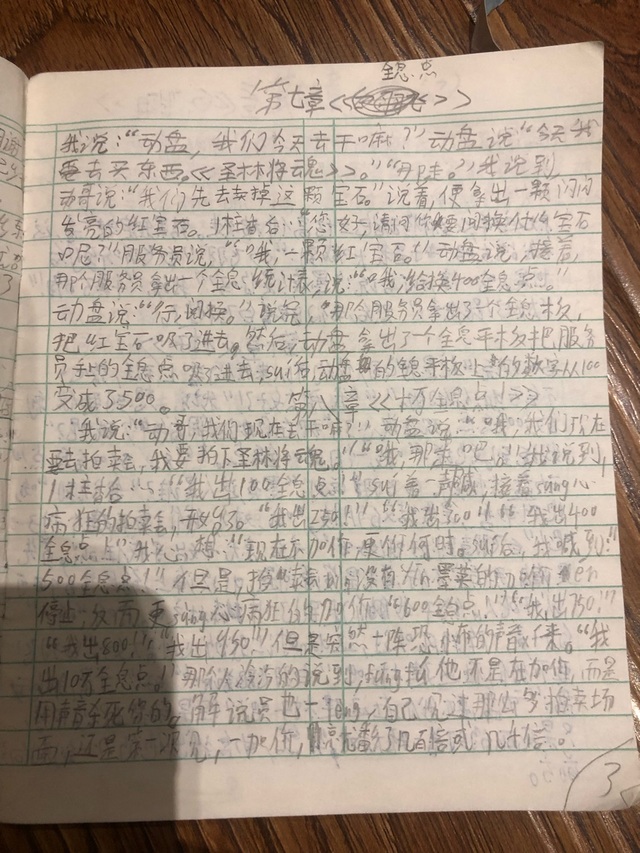 全息点
第七章《》
我说:“动盘,我们今天去干嘛?”动盘说:“今天我
要去买东西。《圣林将魂》。”“那走。”我说到
动哥说:“我们先去卖掉这颗宝石。”说着,便拿出一颗闪闪
发亮的红宝石。柜台:“您好,请问你要闭换什么宝石
呢?”服务员说,“哦,一颗红宝石。”动盘说,接着,
那个服务员拿出一个全息统计表,说:“哦,给换400全息点。”
动盘说:“行,闭换。”说完,那个服务员拿出了一个全息板,
把红宝石吸了进去。然后,动盘拿出了一个全息平板把服务
员手上的全息点吸了进去,sui后动盘的全息平板上的数字从100
变成了500。 第八章《十万全息点!》
我说:“动哥,我们现在去干嘛?”动盘说:“哦,我们现在
要去拍卖会,我要拍下圣林将魂。”“哦,那走吧。”我说到,
“我出100全息点!”sui着一声喊,接着sàng心
病狂的拍卖会,开始了。“我出250!”“我出300!”“我出400
全息点!”我心想:“现在不加价更待何时。”sui后,我喊到:“
500全息点!”但是,拍卖会没有
停止,反而更sàng心病狂的加价,“600全息点!”“我出750!”
“我出800!”“我出950!”但是突然一阵恐怖的声音传来。“我
出10万全息点。”那个人冷冷的说到,他不是在加价,而是
用声音杀死你的。解说员也一leng,自己见过那么多拍卖场
面,还是第一次见,一加价,翻了几百倍或几十倍。
3